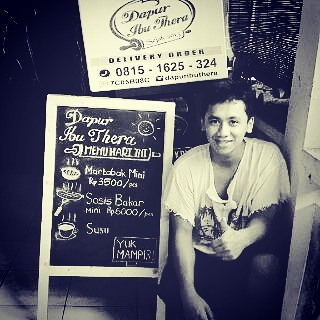 Dapur
Ibu Thera
DELIVERY ORDER
0815 - 1625 - 324
dapuributhera
Dapur
Ibu Thera
MENU HARI INI
Martabak Mini
Rp 3500/pcs
Sosis Bakar
Mini Rp 6000/pcs
Susu
YUK
MAMPIR!